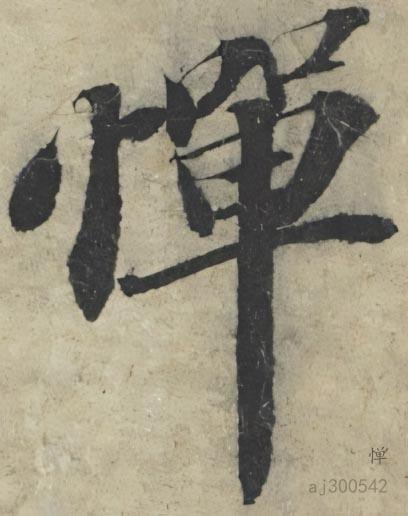 惮
惮
aj300542